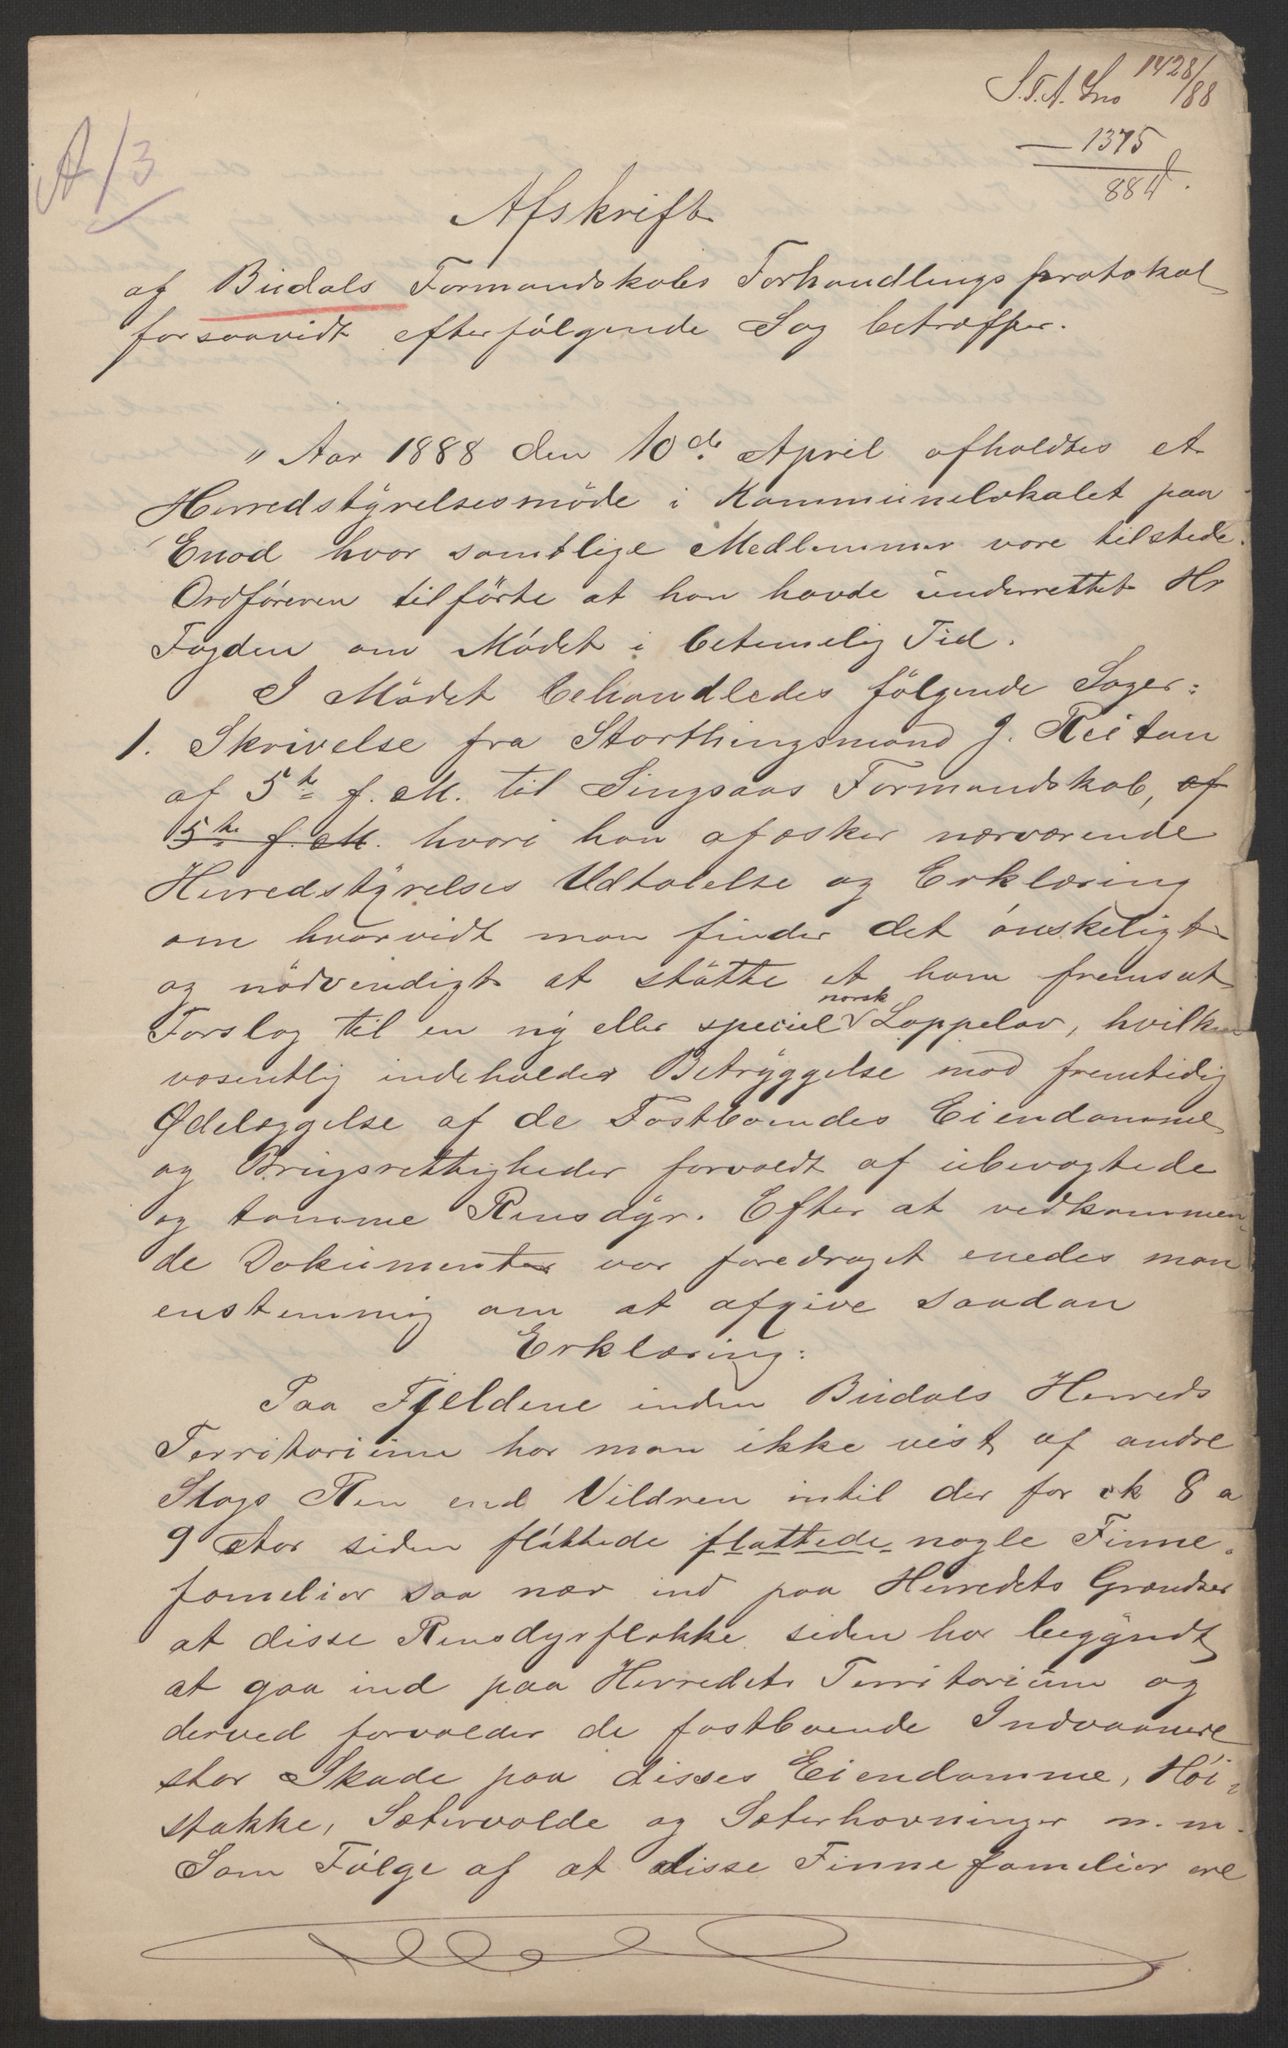 S.T.A. Sno 1428/88
— 1375
884
A/3
Afskrift
af Budals Formandskabs Forhandlingsprotokol
forsaavidt efterfølgende Sag betræffer.
„ Aar 1888 den 10de April afholdtes et
Herredstyrelsesmöde i Kommunelokalet paa
Enod hvor samtlige Medlemmer vare tilstede.
Ordföreren tilförte at han havde underrettet Hr
Fogden om Mödet i betimelig Tid.
I Mödet behandledes fölgende Sager:
1. Skrivelse fra Storthingsmand J. Reitan
af 5te f. M. til Singsaas Formandskab, af
5te f. M. hvori han afæsker nærværende
Herredstyrelses Udtalelse og Erklæring
om hvorvidt man finder det önskeligt
og nödvendigt at stötte et ham fremsat
Forslag til en ny eller speciel norsk Lappelov, hvilken
væsentlig indeholder Betryggelse mod fremtidig
Ødelæggelse af de Fastboendes Eiendomme
og Brugsrettigheder forvoldt af ubevogtede
og tamme Rensdyr. Efter at vedkommen-
de Dokumenter var foredraget enedes man
enstemmig om at afgive saadan
Erklæring:
Paa Fjeldene inden Budals Herreds
Territorium har man ikke vist af andre
Slags Ren end Vildren intil der for ck 8 a
9 Aar siden flöttede flattede nogle Finne-
familier saa nær ind paa Herredets Grændser
at disse Rensdyrflokke siden har begyndt
at gaa ind paa Herredets Territorium og
derved forvolder de fastboende Indvaanere
stor Skade paa disses Eiendomme, Höi-
stakke, Sætervolde og Sæterhavninger m. m.
Som Fölge af at disse Finnefamilier ere